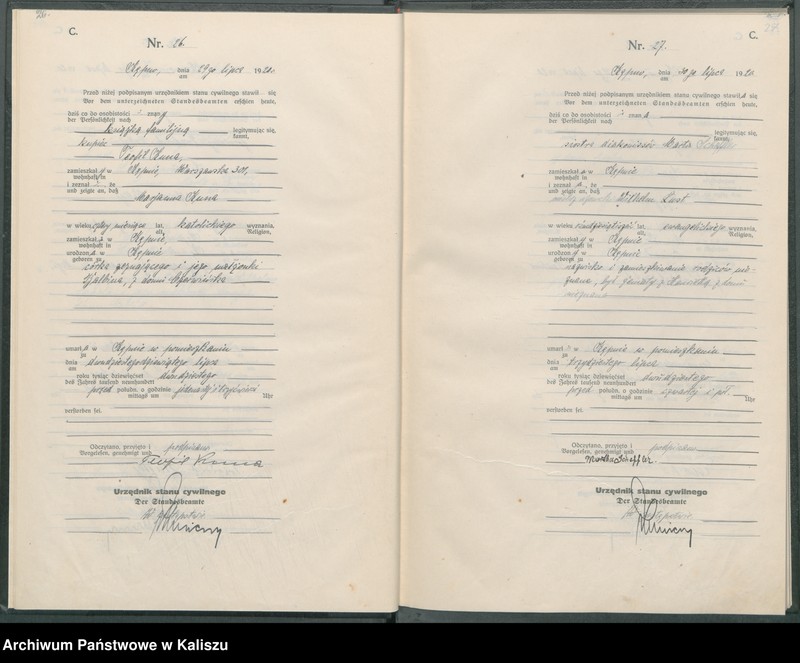 C.
Nr. 26.
Kępno, dnia 29go lipca 1920.
am
Przed niżej podpisanym urzędnikiem stanu cywilnego stawił się
Vor dem unterzeichneten Standesbeamten erschien heute,
dziś co do osobistości znany
der Persönlichkeit nach
książką familijną legitymując się,
kannt,
kupiec
Teofil
zamieszkały w Kępnie, Warszawska 301,
wohnhaft in
i zeznał, że
und zeigte an, daß
Marjanna
w wieku lat, katolickiego wyznania.
alt, Religion,
zamieszkała w Kępnie,
wohnhaft in
urodzona w Kępnie
geboren zu
córka zeznającego i jego małżonki
z domu
umarła w Kępnie w pomieszkaniu
zu
dnia dwudziestegodziewiątego lipca
am
roku tysiąc dziewięćset dwudziestego
des Jahres tausend neunhundert
przed połudn. o godzinie
mittags um Uhr
verstorben sei.
Odczytano, przyjęto i podpisano
Vorgelesen, genehmigt und
Teofil
Urzędnik stanu cywilnego
Der Standesbeamte
W zastępstwie
C.
Nr. 27.
Kępno, dnia 30go lipca 1920.
am
Przed niżej podpisanym urzędnikiem stanu cywilnego stawiła się
Vor dem unterzeichneten Standesbeamten erschien heute,
dziś co do osobistości znana
der Persönlichkeit nach
legitymując się,
kannt,
siostra diakonisów Marta
zamieszkała w Kępnie
wohnhaft in
i zeznała, że
und zeigte an, daß
Wilhelm
w wieku lat, ewangelickiego wyznania.
alt, Religion,
zamieszkały w Kępnie
wohnhaft in
urodzony w Kępnie
geboren zu
nazwisko i zamieszkanie rodziców nie-
znane, był żonaty z z domu
umarł w Kępnie w pomieszkaniu
zu
dnia trzydziestego lipca
am
roku tysiąc dziewięćset dwudziestego
des Jahres tausend neunhundert
przed połudn. o godzinie czwartej i pół
mittags um Uhr
verstorben sei.
Odczytano, przyjęto i podpisano
Vorgelesen, genehmigt und
Martha Scheffler.
Urzędnik stanu cywilnego
Der Standesbeamte
W zastępstwie
Archiwum Państwowe w Kaliszu